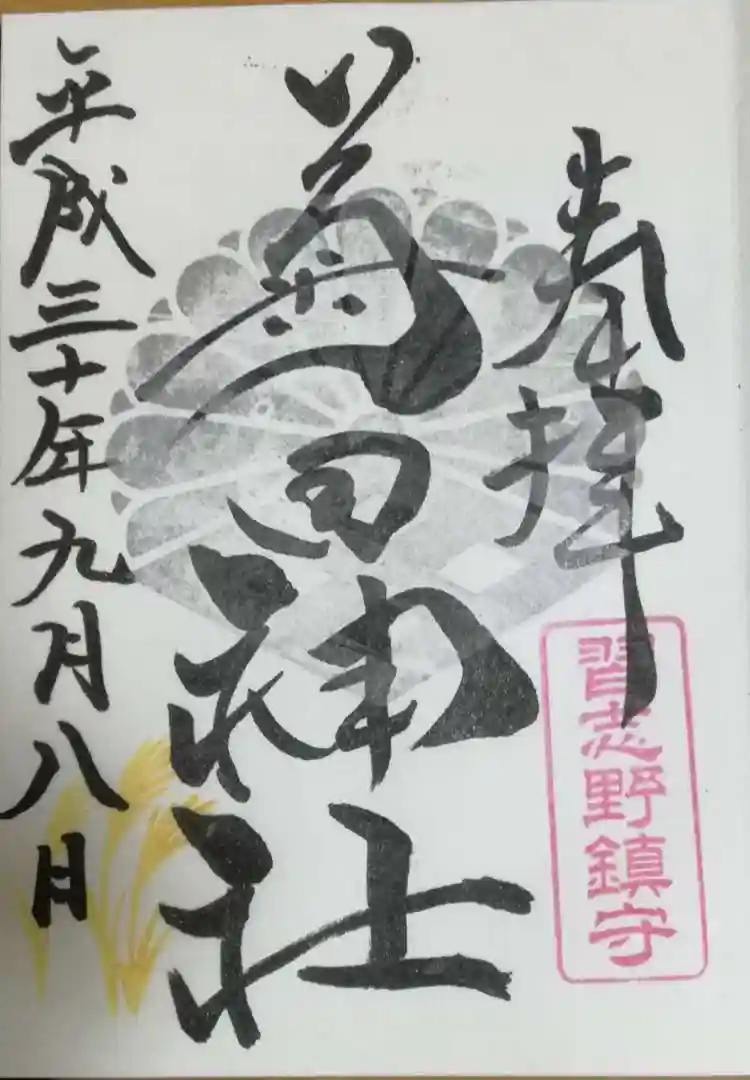 奉拝
習志野鎮守
菊田神社
平成三十年九月八日